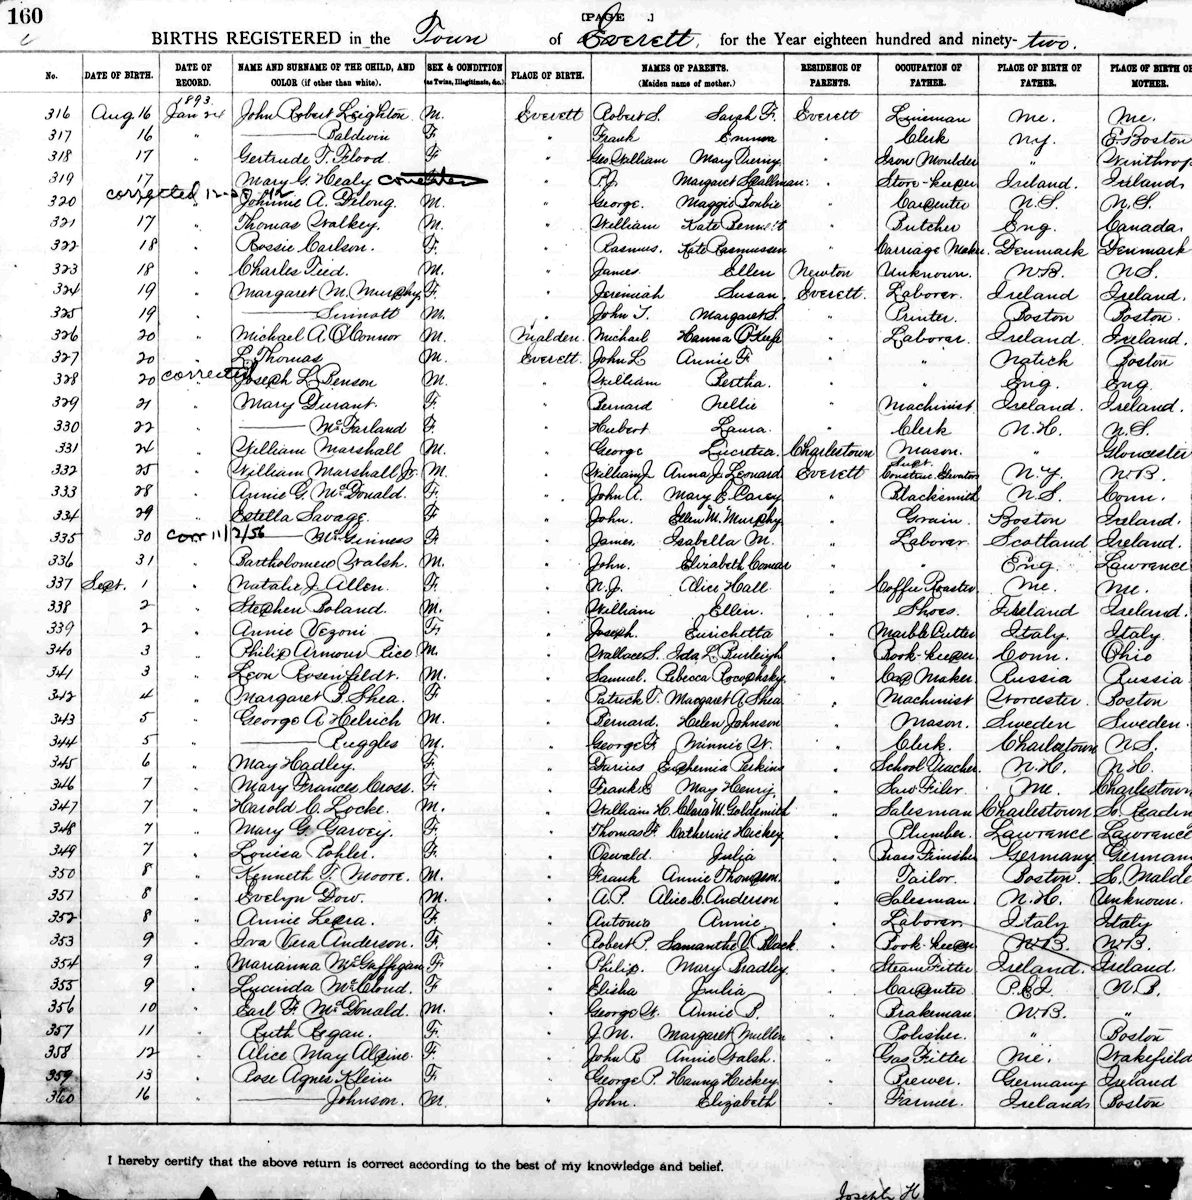 160 [PAGE .]
BIRTHS REGISTERED in the Town of Everett, for the Year eighteen hundred and ninety-two.
No. DATE OF BIRTH. DATE OF RECORD. NAME AND SURNAME OF THE CHILD, AND COLOR (if other than white). SEX & CONDITION (as Twins, Illegitimate, &c.) PLACE OF BIRTH. NAMES OF PARENTS. (Maiden name of mother.) RESIDENCE OF PARENTS. OCCUPATION OF FATHER. PLACE OF BIRTH OF FATHER. PLACE OF BIRTH OF MOTHER.
316 Aug 16 1893. Jan 24 John Robert Leighton M. Everett Robert S. Sarah F. Everett Lineman Me. Me.
317 16 " ——— Baldwin F. " Frank Emma " Clerk N.Y. E. Boston
318 17 " Gertrude T. Flood F. " Geo William Mary " Iron Moulder " Winthrop
319 17 " Mary G. Healy F. " P.J. Margaret " Store-keeper Ireland. Ireland
corrected
320 Johnnie A. Delong. M. " George. Maggie " Carpenter N.S. N.S.
321 17 " Thomas Walkey. M. " William Kate " Butcher Eng. Canada.
322 18 " Rossie Carlson. F. " Rasmus. Kate Rasmussen " Carriage Maker. Denmark Denmark
323 18 " Charles Teed. M. " James Ellen Newton Unknown. N.B. N.S.
324 19 " Margaret M. Murphy F. " Jeremiah Susan. Everett. Laborer. Ireland Ireland.
325 19 " ——— Sinnott M. " John T. Margaret S. " Printer Boston Boston.
326 20 " Michael A. O'Connor M. Malden. Michael Hanna O'Keefe " Laborer. Ireland. Ireland.
327 20 " L. Thomas M. Everett. John L. Annie F. " " Natick Boston
328 20 corrected Joseph L. Benson M. " William Bertha. " " Eng. Eng.
329 21 " Mary Durant. F. " Bernard Nellie " Machinist Ireland. Ireland.
330 22 " ——— McFarland F. " Hubert Laura. " Clerk N.H. N.S.
331 24 " William Marshall M. " George Lucretia. Charlestown Mason. " Gloucester
332 25 " William Marshall Jr. M. " William J. Anna J. Leonard Everett Supt. Construc. Elevators N.Y. N.B.
333 28 " Annie G. McDonald. F. " John A. Mary E. Carey " Blacksmith N.S. Conn.
334 29 " Estella Savage. F. " John. Ellen M. Murphy " Grain. Boston Ireland.
335 30 corr 11/2/56 ——— McGinness F. " James Isabella M. " Laborer Scotland Ireland.
336 31 " Bartholomew Walsh. M. " John. Elizabeth " " Eng. Lawrence
337 Sept. 1 " Natalie J. Allen. F. " N.J. Alice Hall " Coffee Roaster Me. Me.
338 2 " Stephen Boland. M. " William Ellen. " Shoes. Ireland Ireland.
339 2 " Annie Vezoni F. " Joseph Enrichetta " Marble Cutter Italy. Italy.
340 3 " Philip Armour Rice M. " Wallace S. Ida L. Burleigh " Book-keeper Conn. Ohio
341 3 " Leon Rosenfeldt. M. " Samuel. Rebecca " Cap Maker Russia Russia.
342 4 " Margaret B. Shea. F. " Patrick T. Margaret A. Shea. " Machinist Worcester Boston
343 5 " George A. Helrich M. " Bernard. Helen Johnson " Mason. Sweden Sweden.
344 5 " ——— Ruggles M. " George F. Minnie W. " Clerk. Charlestown N.S.
345 6 " May Hadley. F. " Darius Euphemia Perkins " School Teacher. N.H. N.H.
346 7 " Mary Frances Cross. F. " Frank E. May Henry. " Saw Filer. Me. Charlestown
347 7 " Harold C. Locke. M. " William H. Clara M. Goldsmith " Salesman Charlestown So. Readin
348 7 " Mary G. Garvey. F. " Thomas F. Catherine Hickey " Plumber. Lawrence Lawrence
349 7 " Louisa Pohler. F. " Oswald. Julia " Brass Finisher Germany German
350 8 " Kenneth T. Moore. M. " Frank Annie Thompson. " Tailor. Boston. So. Malde
351 8 " Evelyn Dow. M. " A.P. Alice C. Anderson " Salesman N.H. Unknown.
352 8 " Annie Lepra. F. " Antonio Annie " Laborer Italy Italy
353 9 " Iva Vera Anderson. F. " Robert P. Samantha V. Black " Book-keeper N.B. N.B.
354 9 " Marianna McGaffigan F. " Philip. Mary Bradley. " Steam Fitter Ireland. Ireland.
355 9 " Lucinda McCloud. F. " Elisha Julia " Carpenter P.E.I. N.B.
356 10 " Earl F. McDonald. M. " George W. Annie B. " Brakeman N.B. "
357 11 " Ruth Regan. F. " J.M. Margaret Mullen " Polisher. " Boston
358 12 " Alice May Alpine. F. " John R. Annie Walsh. " Gas Fitter Me. Wakefield
359 13 " Rose Agnes Klein F. " George P. Hanna Hickey. " Brewer. Germany Ireland
360 16 " ——— Johnson. M. " John. Elizabeth " Farmer. Ireland Boston
I hereby certify that the above return is correct according to the best of my knowledge and belief.
Joseph H